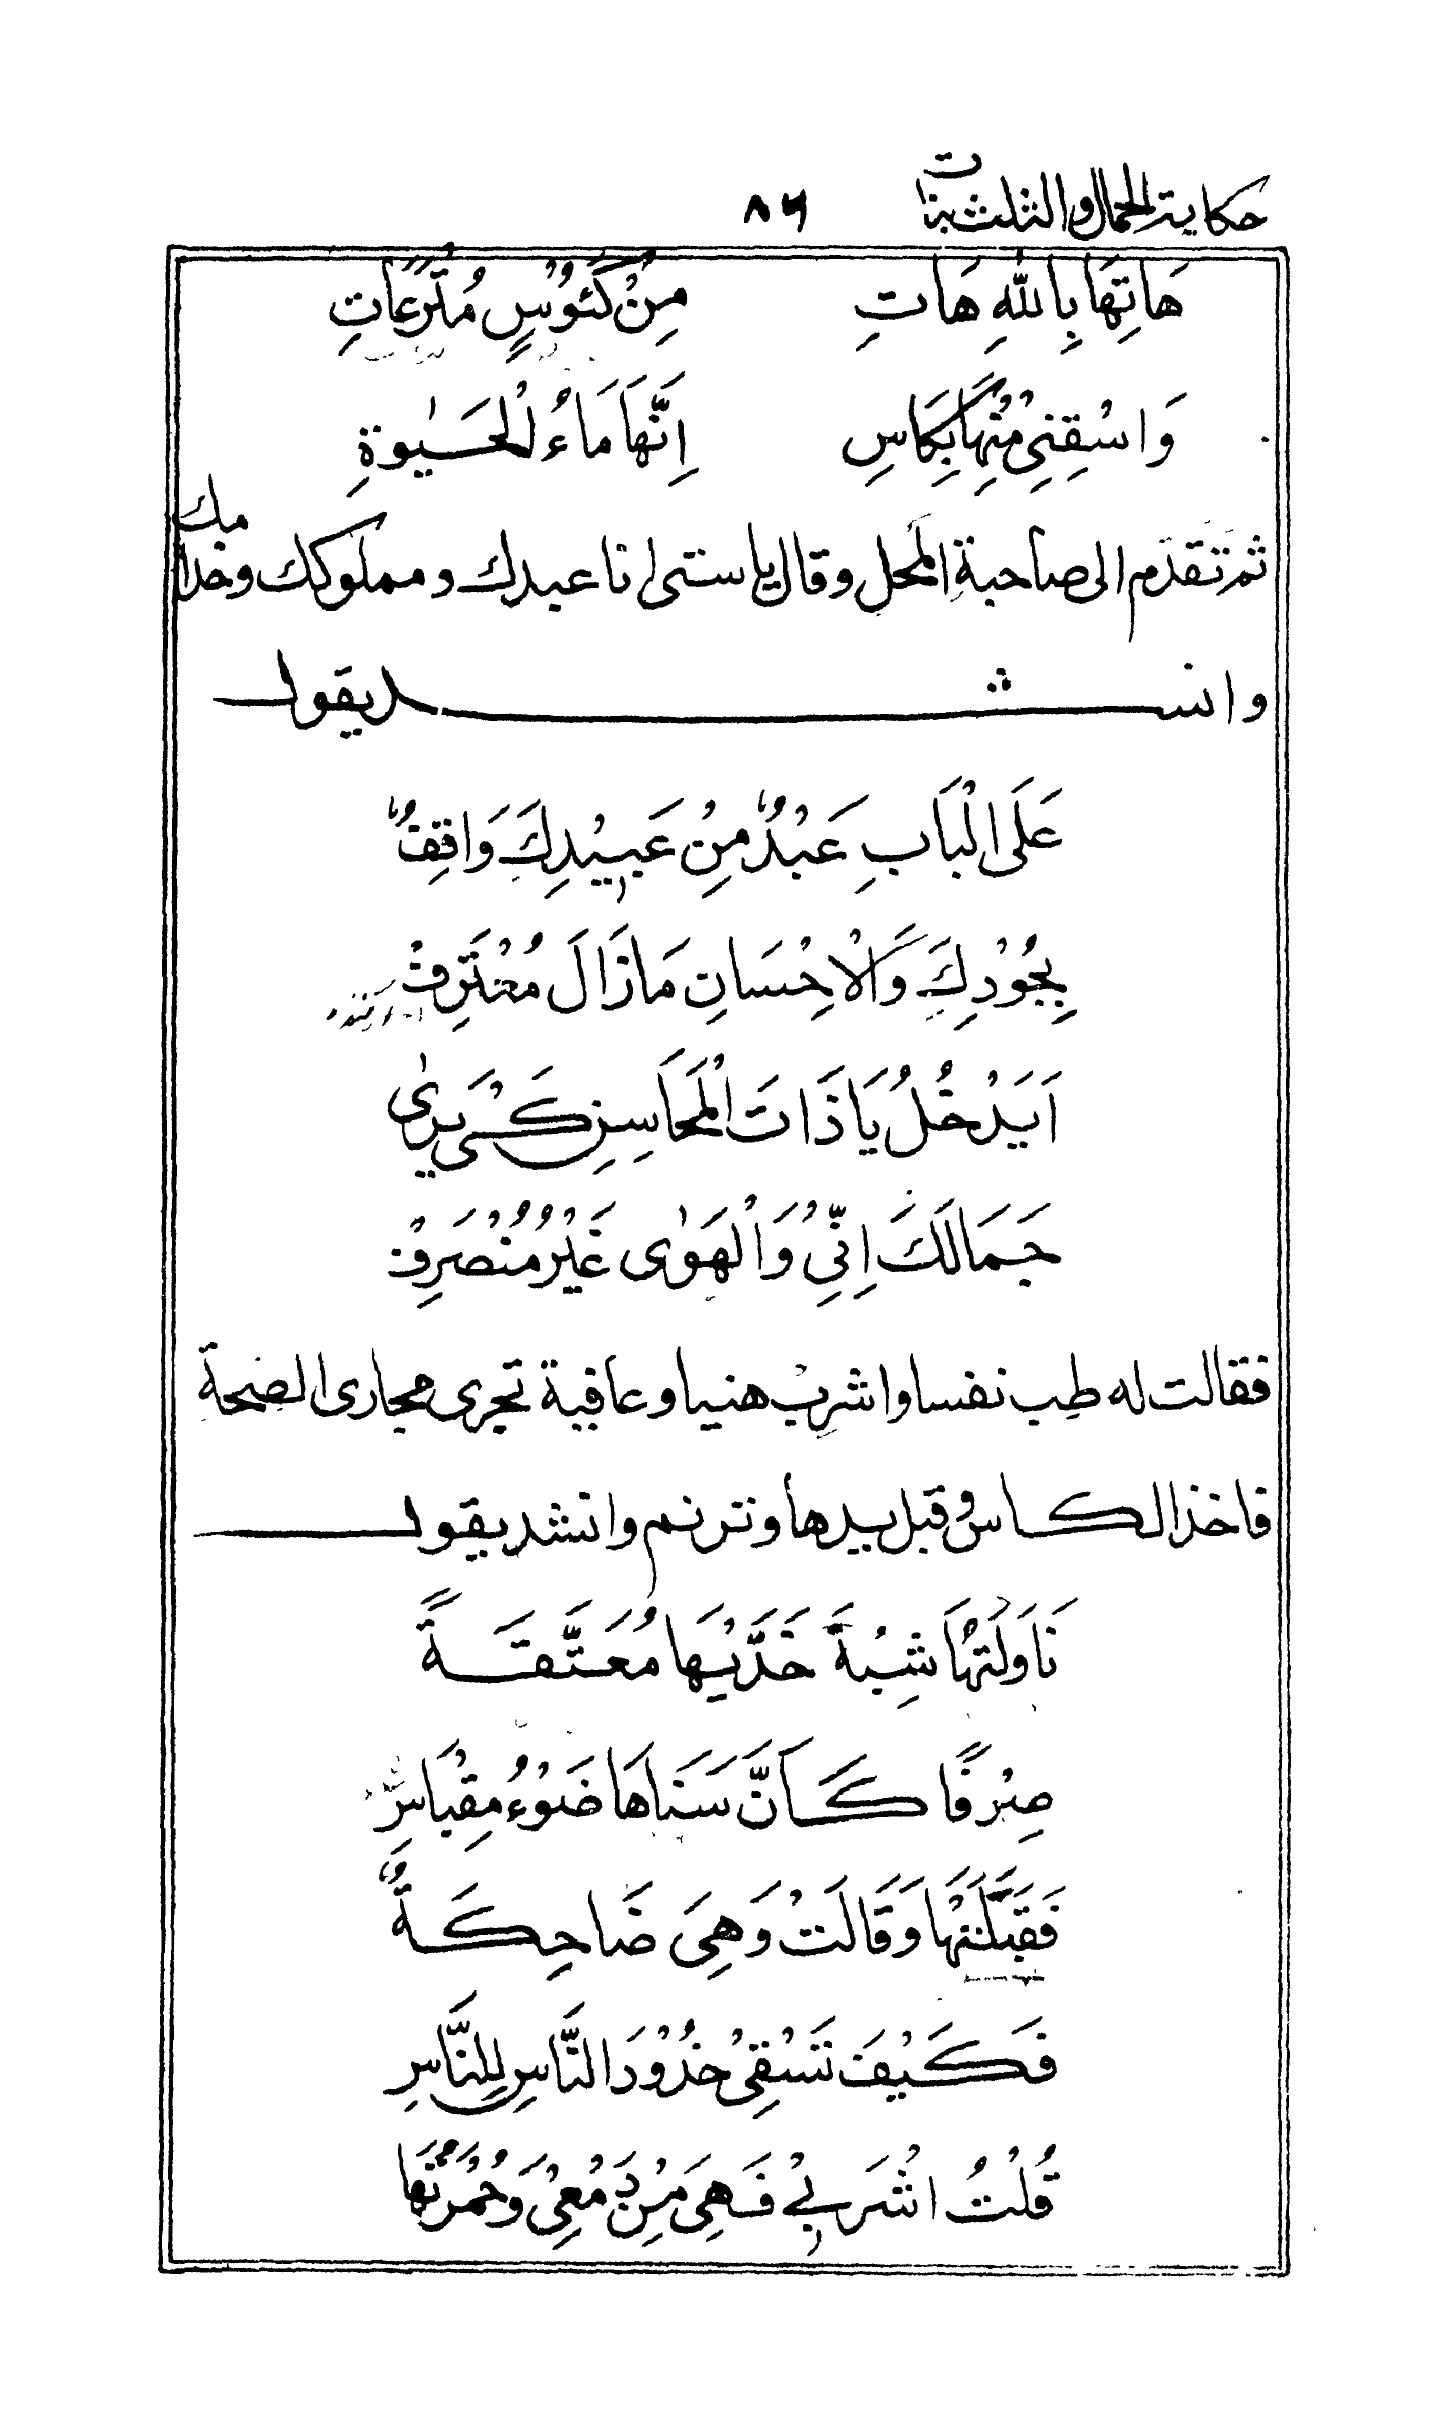 حكاية الحمال والثلث بنات ٨٦
هَاتِهَا بِاللّٰهِ هَاتِ مِنْ كَئُوْسٍ مُتْرَعَاتِ
وَاسْقِنِىْ مِنْهَا بِكَاسِ اِنَّهَا مَاءُ الْحَيٰوةِ
ثم تقدّم الى صاحبةِ المَحل وقال يا ستى انا عبدك ومملوكك وخدامك
وانشــد يقول
عَلَى الْبَابِ عَبْدٌ مِنْ عَبِيْدِكَ وَاقِفٌ
بِجُوْدِكَ وَالْاِحْسَانِ مَازَالَ مُعْتَرِفْ
اَيَدْخُلُ يَا ذَاتَ الْمَحَاسِنِ كَىْ يَرىٰ
جَمَالَكَ اِنِّىْ وَالْهَوٰى غَيْرُ مُنْصَرِفْ
فقالت له طِب نفسا واشرِبْ هنيا وعافية تجرى مجارى الصحة
فاخذ الكاس وقبل يدها وترنم وانشد يقول
نَاوَلَتْهَا شِبْهَ خَدَّيْهَا مُعَتَّقَةً
صِرْفًا كَاَنَّ سَنَاهَا ضَوْءُ مِقْبَاسِ
فَقَبَّلَتْهَا وَقَالَتْ وَهِىَ ضَاحِكَةٌ
فَكَيْفَ تَسْقِىْ خُدُوْدَ النَّاسِ لِلنَّاسِ
قُلْتُ اشْرَبِىْ فَهِىَ مِنْ دَمْعِىْ وَحُمْرَتُهَا